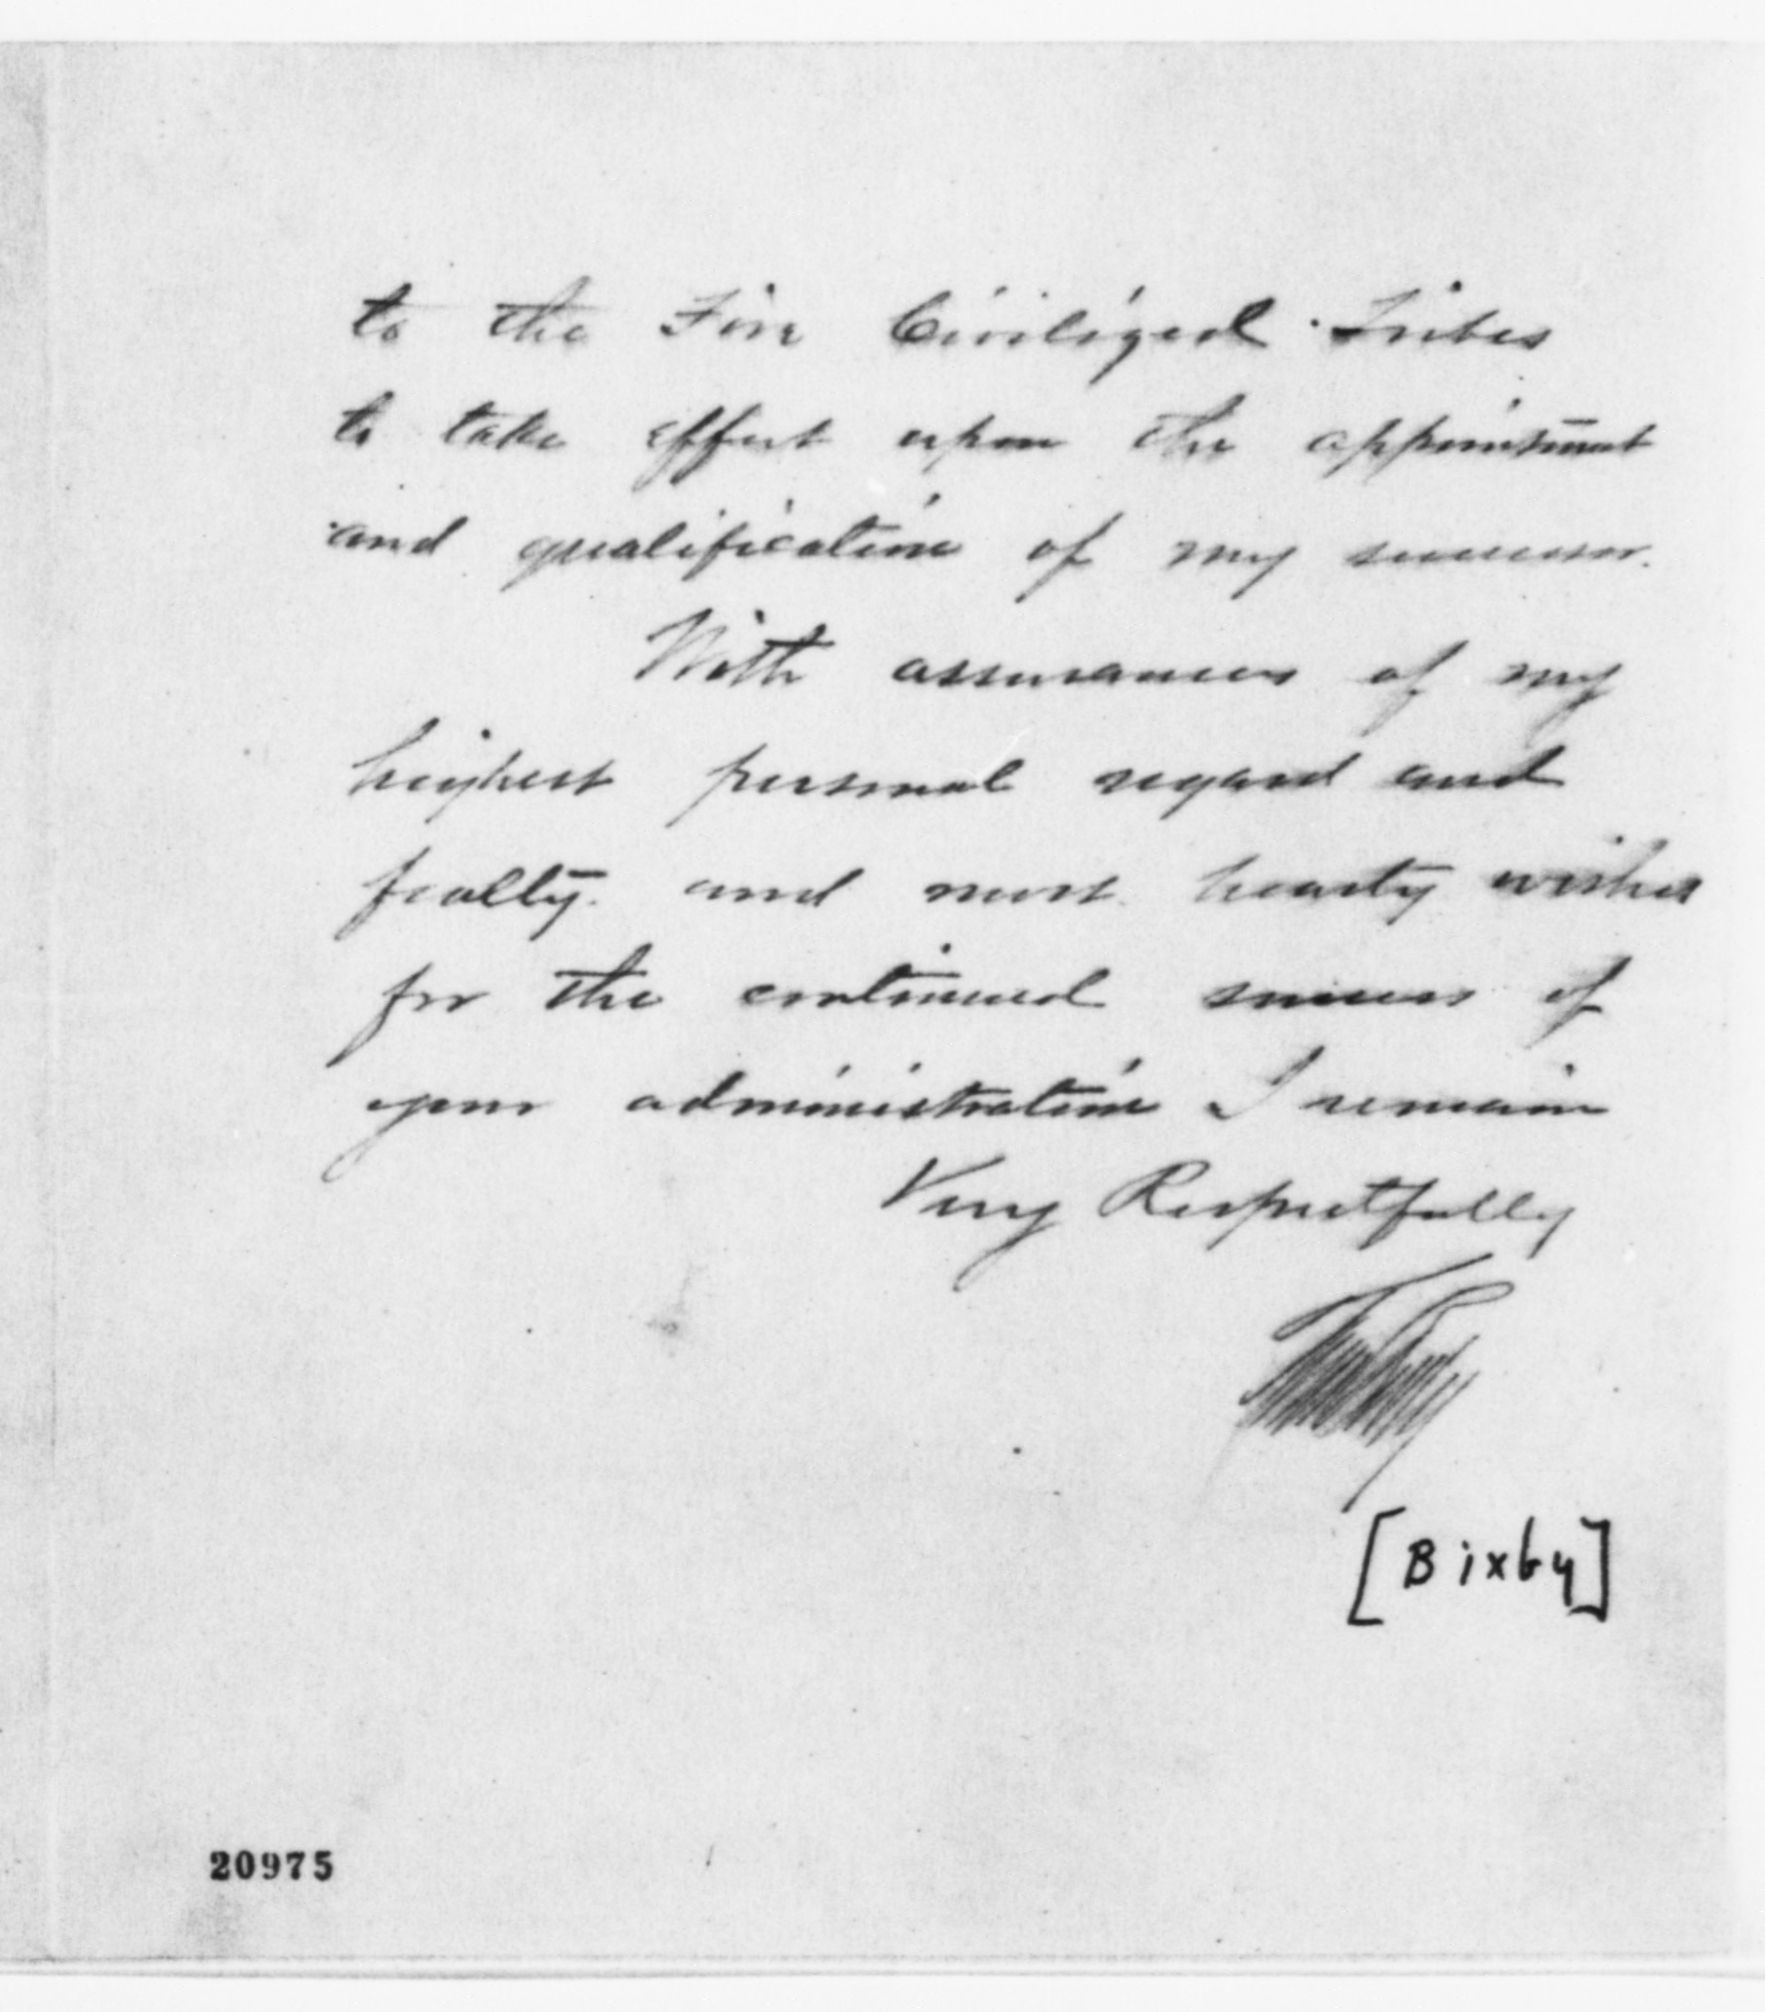 to the Five Civilized Tribes
to take effect upon the appointment
and qualification of my successor.
With assurances of my
highest personal regard and
fealty and most hearty wishes
for the continued success of
your administration I remain
Very Respectfully
[Bixby]
20975